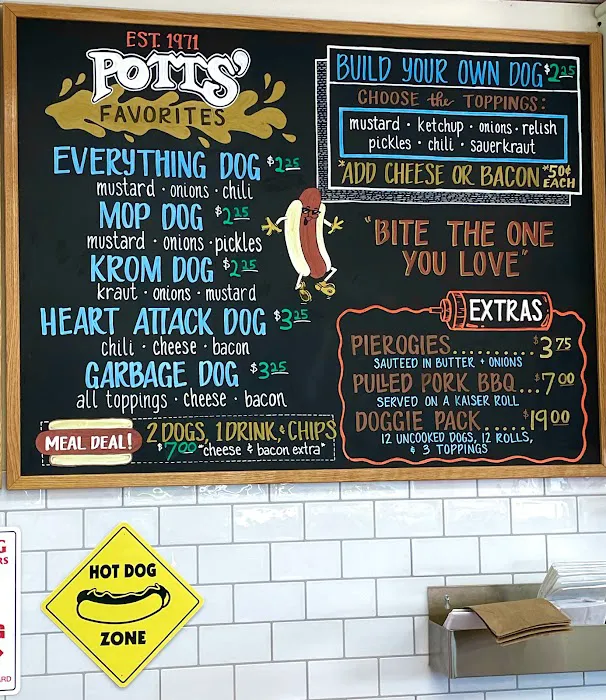 EST. 1971
POTTS'
FAVORITES
EVERYTHING DOG $2.25
mustard · onions · chili
MOP DOG $2.25
mustard · onions · pickles
KROM DOG $2.25
kraut · onions · mustard
HEART ATTACK DOG $3.25
chili · cheese · bacon
GARBAGE DOG $3.25
all toppings · cheese · bacon
MEAL DEAL!
2 DOGS, 1 DRINK, & CHIPS
$7.00 "cheese & bacon extra"
BUILD YOUR OWN DOG $2.25
CHOOSE the TOPPINGS:
mustard · ketchup · onions · relish
pickles · chili · sauerkraut
*ADD CHEESE OR BACON *50¢ EACH
"BITE THE ONE
YOU LOVE"
EXTRAS
PIEROGIES.......... $3.75
SAUTEED IN BUTTER + ONIONS
PULLED PORK BBQ... $7.00
SERVED ON A KAISER ROLL
DOGGIE PACK..... $19.00
12 UNCOOKED DOGS, 12 ROLLS,
& 3 TOPPINGS
HOT DOG
ZONE